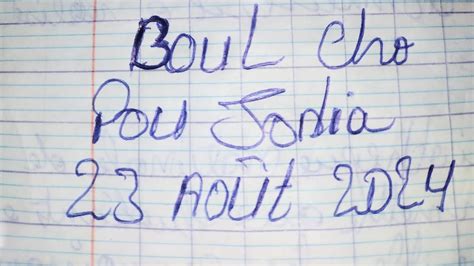 BouL Cho
Pou Sonia
23 Août 2024